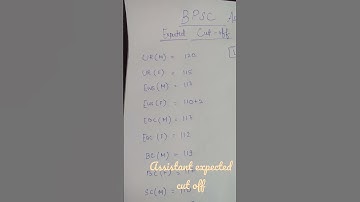 BPSC
Expected Cut-off
UR(M) = 120
UR(F) = 115
EWS(M) = 117
EWS(F) = 110+2
EBC(M) = 117
EBC(F) = 112
BC(M) = 119
SC(M) =
Assistant expected
cut off